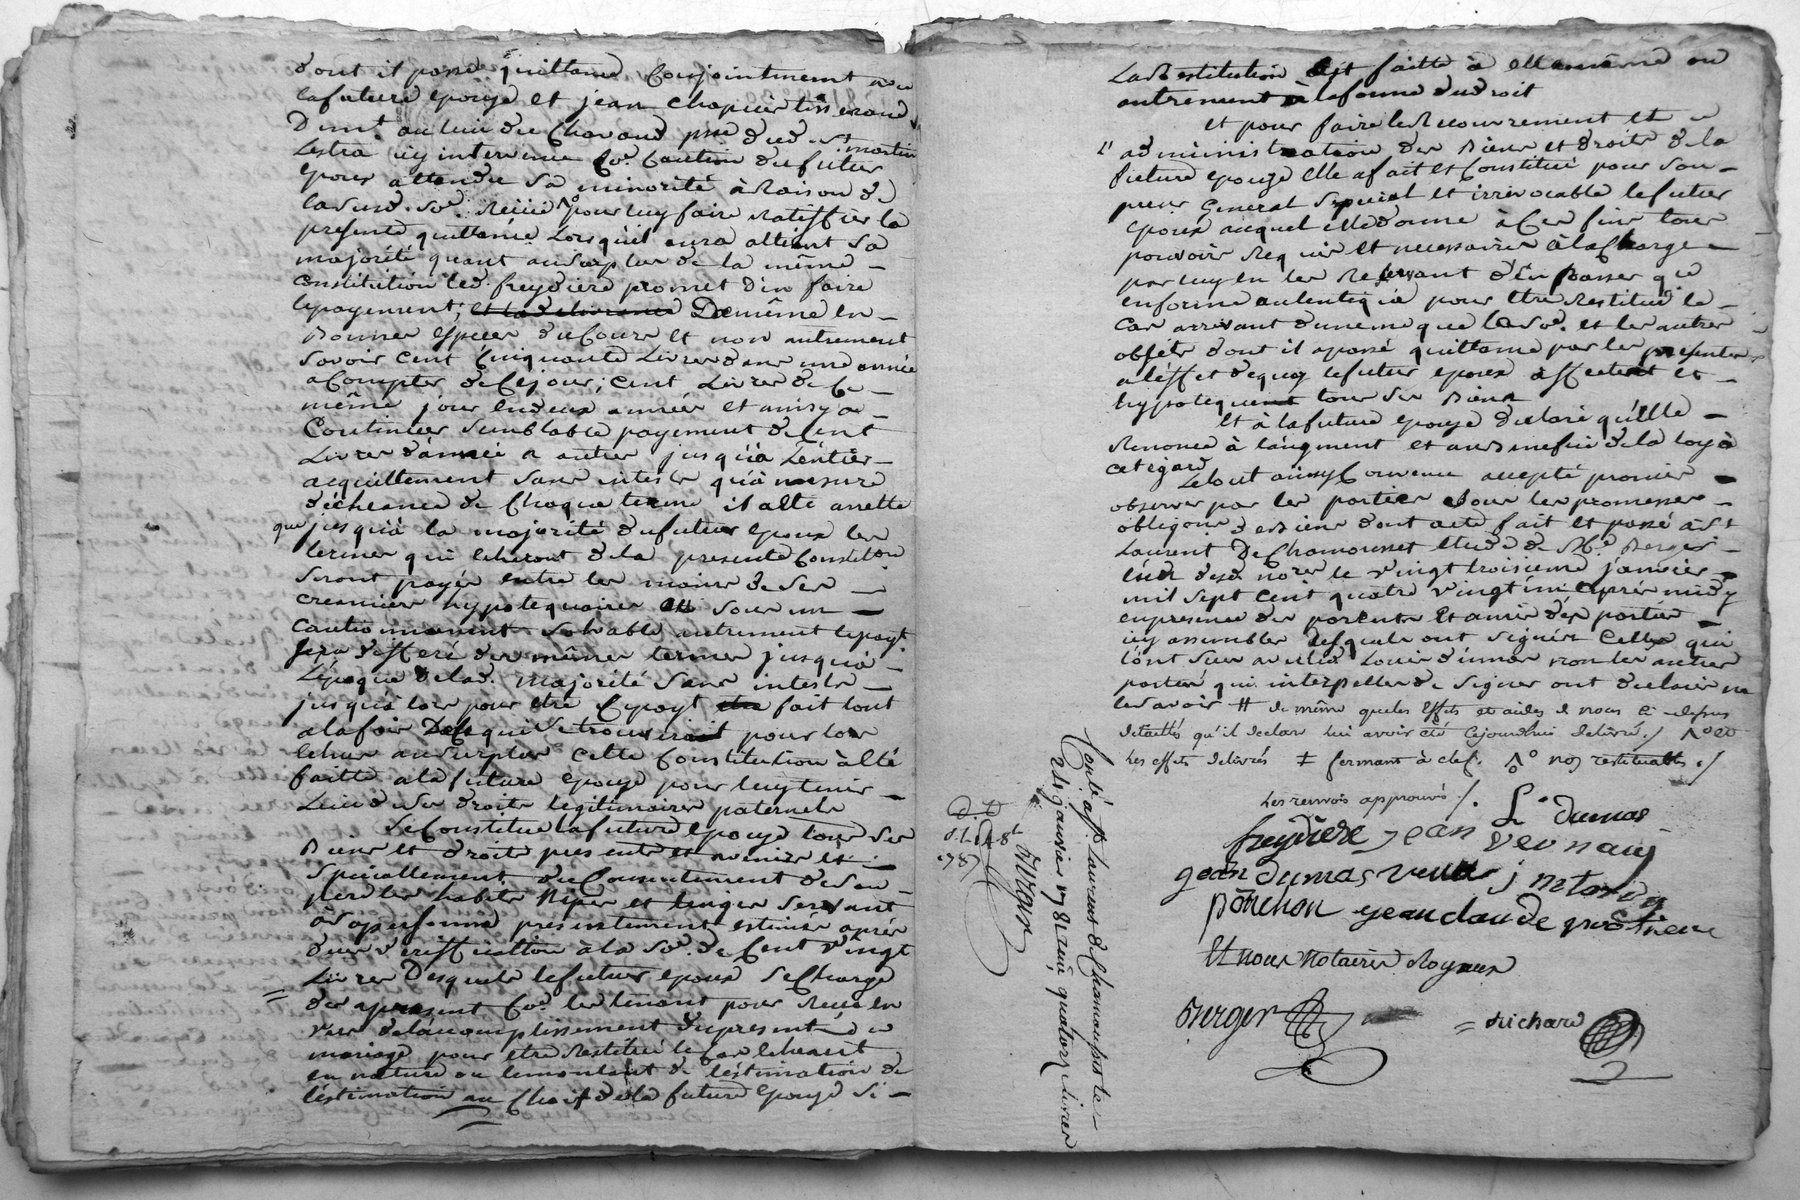 dont il passe quittance Conjointement avec
la future epouze et jean Chapuis tisserand
Demt. au lieu du Chavand psse dud. st. martin
Lestra icy intervenue Caution du futur
epoux attendu sa minorité à Raison de
lad. so.e Reçüe pour luy faire Ratiffier la
presente quittance Lorsqu'il aura atteint sa
majorité quant au surplus de la même
Constitution led. freydiere promet d'en faire
lepayement; et la delivrance De même en
Bonnes especes du Cours et non autrement
savoir cent Cinquante Livres dans une année
a Compter de Cejour; cent Livres de Ce
même jour en deux années et ainsy a
Continuer semblable payement de Cent
Livres d'année a autre jusqu'à Lentier
acquittement sans interets qu'à mesure
d'écheance de Chaque terme il a été arretté
que jusqu'à la majorité du futur epoux les
termes qui echeront de la presente Constitⁿ
seront payés entre les mains de ses
creanciers hypotequaires ou sous un
Cautionnement solvable autrement lepayt
sera differé des mêmes termes jusqu'à
L'époque de lad. majorité sans interets
jusqu'à lors pour etre lepayt fait tout
a la fois De ce qui se trouveroit pour lors
echeu au surplus cette Constitution a été
faitte a la future epouze pour luy tenir
Lieu de ses droits legitimaires paternels
Se Constitue la future epouze tous ses
Biens et droits presents et avenir et
Speciallement du Consentement de son
pere les habits Nipes et linges servant
à sa personne presentement estimés après
due veriffication à la so.e de Cent vingt
Livres Desquels le futur epoux se Charge
des apresent les tenant pour Reçus en
vue de l'accomplissement du present
mariage pour etre Restitués le Cas echeant
en nature ou le montant de l'estimation
l'estimation au Choix de la future epouze si
La Restitution Est faitte à elle même ou
autrement à la forme du droit
et pour faire le Recouvrement et
l'administration des Biens et droits de la
future epouze elle a fait et Constitué pour son
preur General Special et irrevocable le futur
epoux auquel elle donne à Ces fins tous
pouvoirs Requis et necessaires à la Charge
par luy en les Recevant d'En Passer qce
en forme autentique pour etre Restitué le
Cas arrivant de même que la so.e et les autres
objets dont il a passé quittance par les presentes
a l'éffet de quoy le futur epoux a affecté et
hypotequé tous ses Biens
Et à la future epouze declaré qu'Elle
Renonce à l'augment et au Benefice de la loy à
cet égard
Letout ainsy Convenu accepté promis
observer par les parties sous les promesses
obligaons de Biens dont acte fait et passé à St
Laurent De Chamousset etude de Me. Berger
l'un desd. nores le vingt troisieme janvier
mil sept cent quatre vingt un après midy
en presence des parents Et amis des parties
icy assemblés lesquels ont signés Celles qui
l'ont sceu avec led. Louis Dumas non les autres
parties qui interpellés de signer ont declaré ne
le savoir # de même que les Effets et aides de nous Ci-dessus
detaillés qu'il declare lui avoir été cejourdhui delivré ./
les effets delivrés ‡ fermant à clef. non restituables ./
Les renvois approuvés ./.
L. Dumas
freydiere jean vernay
jean dumas
ponchon jean claude
Et nous Notaires Royaux
Berger
Richard
Conlé a St Laurent de Chamousset le
24 janvier 1781 reçu quatorze livres